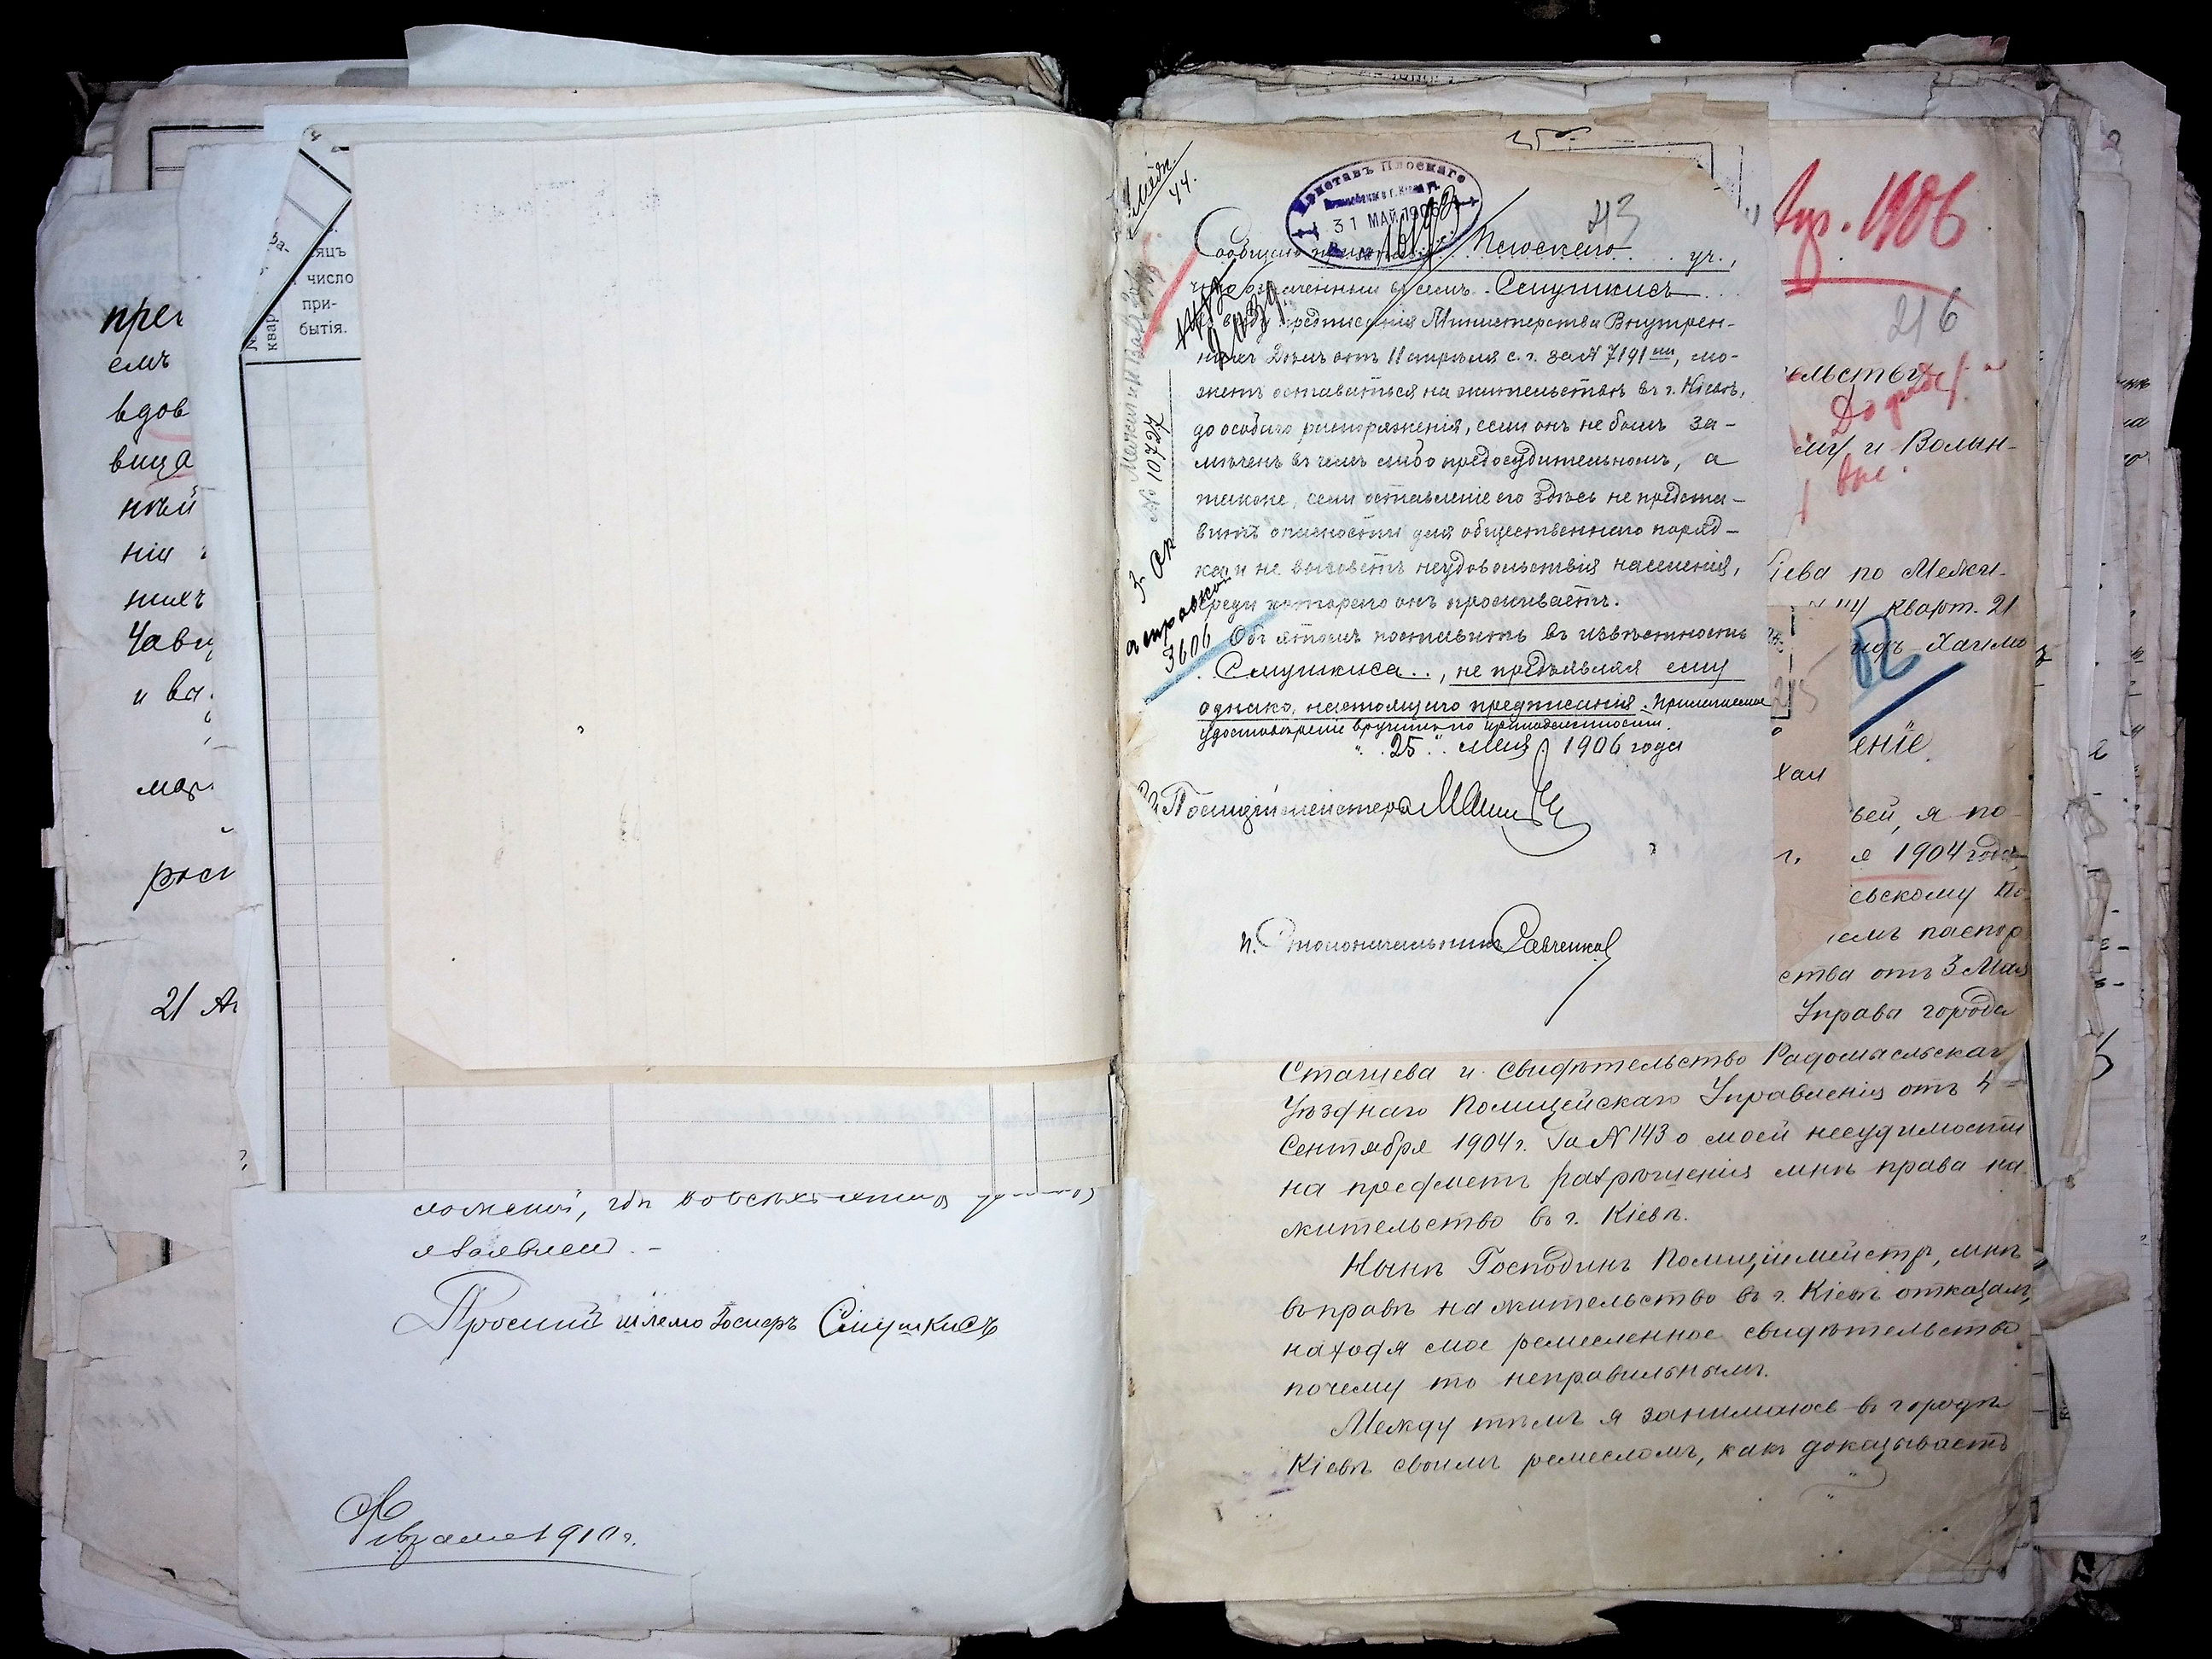 прег
емъ
вдов
вица
нѣй
нія
нихъ
и ва
рас
21 Ав
яцъ
число
при-
бытія.
квар
я заявленъ. –
Проситъ шлемо Іосиеръ Смушкисъ
Февраля 1910 г.
43
Приставъ Плоскаго
31 МАЙ 1906
Сообщаю приставу Плоскаго уч.,
что означенный въ семъ Смушкисъ
въ виду предписанія Министерства Внутрен-
нихъ Дѣлъ отъ 11 апрѣля с. г. за № 7191, мо-
жетъ оставаться на жительствѣ въ г. Кіевѣ,
до особаго распоряженія, если онъ не былъ за-
мѣченъ въ чемъ либо предосудительномъ, а
также, если оставленіе его здѣсь не предста-
витъ опасности для общественнаго поряд-
ка и не вызоветъ неудовольствія населенія,
среди котораго онъ проживаетъ.
Объ этомъ поставить въ извѣстность
Смушкиса.., не предъявляя ему
однако, настоящаго предписанія. Прилагаемое
удостовѣреніе вручить по принадлежности.
"25" мая 1906 года
За Полиціймейстера
п. Столоначальника Савченко
№ 10727
3606
1906
216
ельству
ему и Волын-
Кіева по Межи-
кварт. 21
Хаимо
215
еніе
хаи
вей, я по-
я 1904 года,
евскому По-
емъ паспор
ства отъ 3 Мая
Управы города
Сташева и свидѣтельство Радомысльскаг
Уѣзднаго Полицейскаго Управленія отъ 4 =
Сентября 1904 г. За № 143 о моей несудимости
на предметъ разрѣшенія мнѣ права на
жительство въ г. Кіевѣ.
Нынѣ Господинъ Полиціймейстръ, мнѣ
въ правѣ на жительство въ г. Кіевѣ отказалъ,
находя мое ремесленное свидѣтельство
почему то неправильнымъ.
Между тѣмъ я занимаюсь въ городѣ
Кіевѣ своимъ ремесломъ, какъ доказываетъ